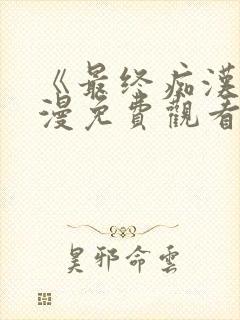 《最终痴漢
漫免費觀看
昊邪命雲